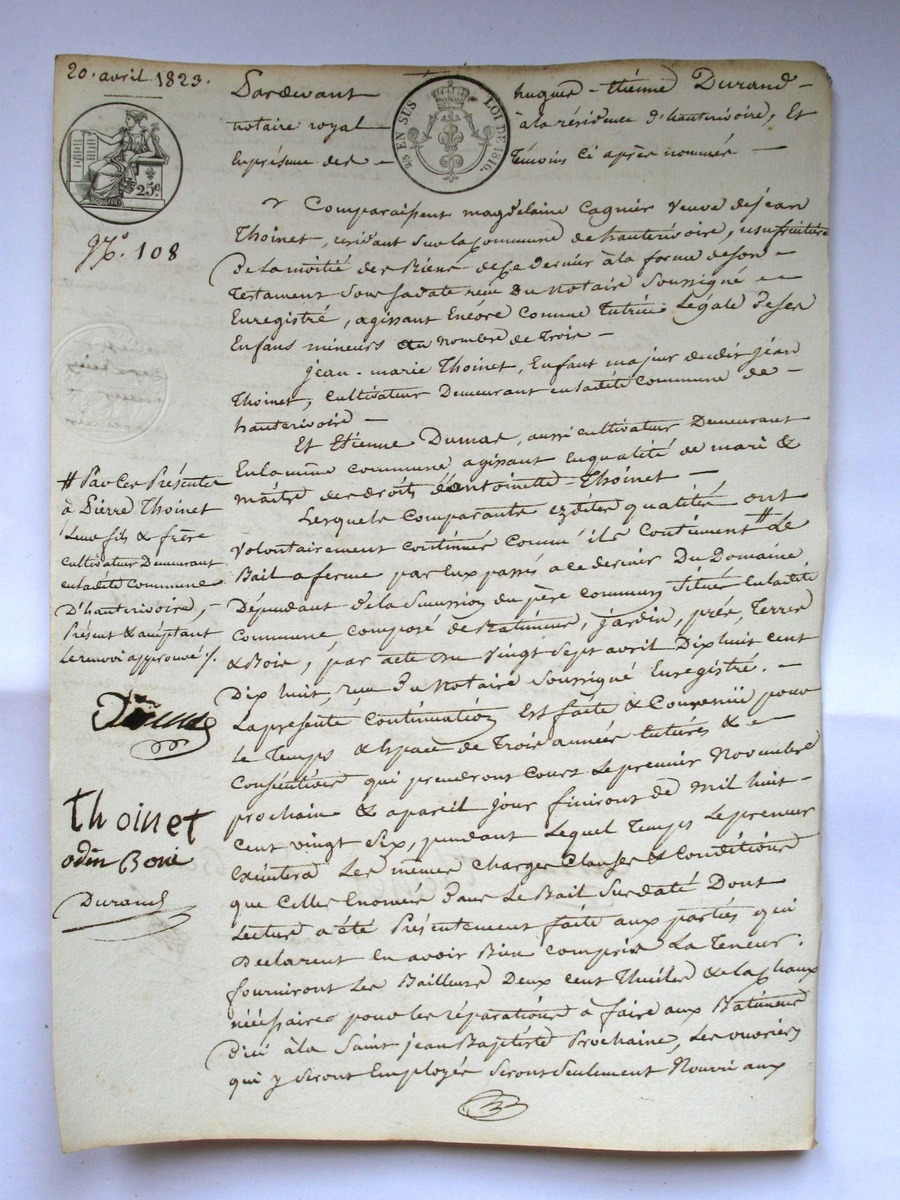 20. avril 1823.
25 EN SUS LOI DE 1816.
25c
No. 108
Pardevant hugues-étienne Durand
notaire royal à la résidence d'hauterivoire, Et
En présence des Témoins Ci après nommés
Comparaissent magdelaine Cagnier Veuve de jean
Thoinet, résidant Sur la Commune de hauterivoire, usufruitière
De la moitié des Biens de Ce Dernier à la forme de son
Testament Sous sa date reçu Du Notaire Soussigné
Enregistré, agissant Encore Comme Tutrice Légale De ses
Enfans mineurs au nombre de Trois
jean-marie Thoinet, Enfant majeur dudit jean
Thoinet, Cultivateur Demeurant en ladite Commune de
hauterivoire
Et Etienne Dumas, aussi cultivateur Demeurant
En la même commune agissant En qualité de mari &
maître des droits d'antoinette Thoinet
Lesquels Comparants Esdites qualités ont
Volontairement Continué Comm' ils Continuent # Le
Bail a ferme par Eux passés a ce dernier Du Domaine
Dépendant de la Succession du père commun Situé En ladite
Commune composé de Batimens, jardin, prés, Terres
& Bois, par acte du Vingt Sept avril Dix huit cent
Dix huit, reçu Du Notaire Soussigné Enregistré.
La présente Continuation Est faite & Convenue pour
le Temps & Espace de Trois années futures &
Consécutives qui prendront Cours Le premier Novembre
prochain & a pareil jour finiront de mil huit
Cent vingt Six, pendant Lequel Temps Le preneur
Exécutera Les mêmes Charges Clauses & Conditions
que Celles Enoncées Dans Le Bail Sus daté Dont
Lecture a été Présentement faite aux parties qui
Déclarent En avoir Bien Compris La Teneur.
fourniront Les Bailleurs Deux Cent Thuiles & de la chaux
nécéssaires pour les réparations à faire aux Batimens
D'ici à la Saint jean Baptiste Prochaine, Les ouvriers
qui y Seront Employés Seront Seulement Nourri aux
# Par Ces Présentes
à Pierre Thoinet
Leur fils & frère
Cultivateur Demeurant
en ladite Commune
D'hauterivoire,
Présent & acceptant
Le renvoi approuvé ./.
Dumas
Thoinet
odin Boné
Durand